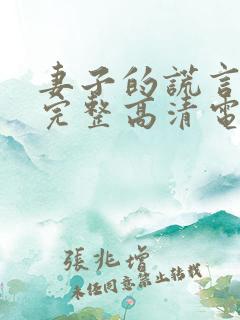 妻子的謊言
完整高清電
張兆增
未经同意禁止转载